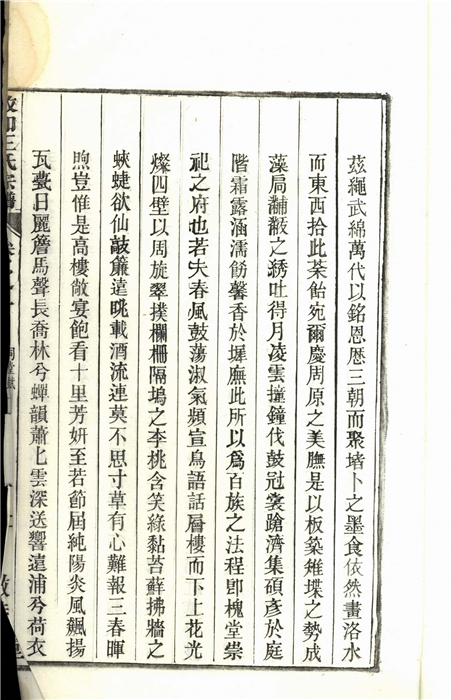 茲繩武綿萬代以銘恩歷三朝而聚墻卜之墨食依然畫洛水
而東西拾此荼飴宛爾慶周原之美膴是以板築雉堞之勢成
藻扃黼黻之綉吐得月凌雲撞鐘伐鼓冠裳蹌濟集碩彥於庭
階霜露涵濡飭馨香於墀廡此所以爲百族之法程卽槐堂崇
祀之府也若夫春風鼓蕩淑氣頻宣鳥語話層樓而下上花光
燦四壁以周旋翠撲欄柵隔塢之李桃含笑綠黏苔蘚拂牆之
蛺蜨欲仙敲簾遠眺載酒流連莫不思寸草有心難報三春暉
煦豈惟是高樓敞宴飽看十里芳妍至若節屆純陽炎風飆揚
瓦甍日麗簷馬聲長喬林兮蟬韻蕭匕雲深送響遠浦兮荷衣
王氏宗譜